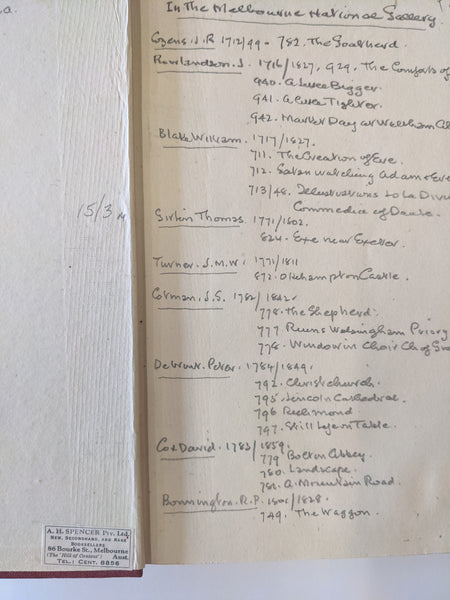 a.
In the Melbourne National Gallery.
Cozens. J. R 1752/99 - 782. The Goatherd
Rowlandson. J. 1756/1827. 929. The Comforts of
940. A Little Bigger.
941. A Little Tighter.
942. Market Day at Waltham
Blake William. 1757/1827.
711. The Creation of Eve.
712. Satan watching Adam & Eve
713/48. Illustrations to La Divi
Commedia of Dante.
15/3
Girtin Thomas. 1771/1802.
824. Exe near Exeter.
Turner. J. M. W. 1771/1811
872. Okehampton Castle.
Cotman. J. S. 1782/1842.
778. The Shepherd.
777 Ruins Walsingham Priory
778. Window in Choir Ch of
De Wint. Peter. 1784/1849.
792. Christchurch.
795. Lincoln Cathedral.
796 Richmond
797. Still Life on Table.
Cox David. 1783/1859.
779 Bolton Abbey.
780. Landscape.
781. A Mountain Road.
Bonnington. R. P. 1801/1828.
749. The Waggon.
A. H. SPENCER Pty. Ltd.
NEW, SECONDHAND, AND RARE
BOOKSELLERS
86 Bourke St., Melbourne
(The 'Hill of Content') Aust.
TEL.: CENT. 8856